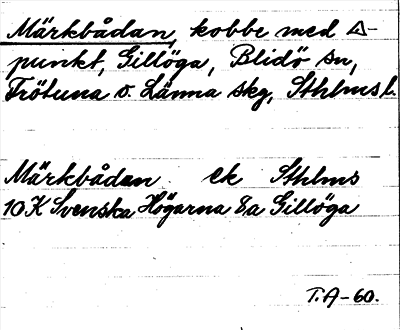 Märkbådan, kobbe med △-
punkt, Gillöga, Blidö sn,
Frötuna o Länna skg, Sthlms l.
Märkbådan ek Sthlms
10K Svenska Högarna 8a Gillöga
T.A-60.